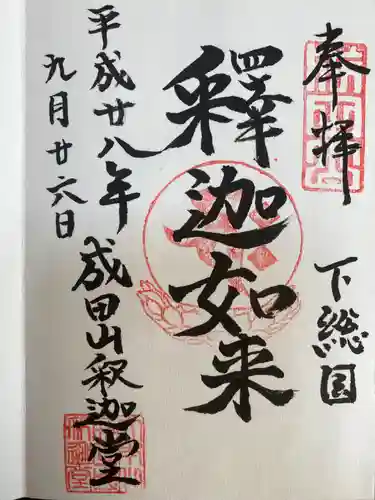 奉拝
下総国
釋迦如来
成田山釈迦堂
平成廿八年
九月廿六日